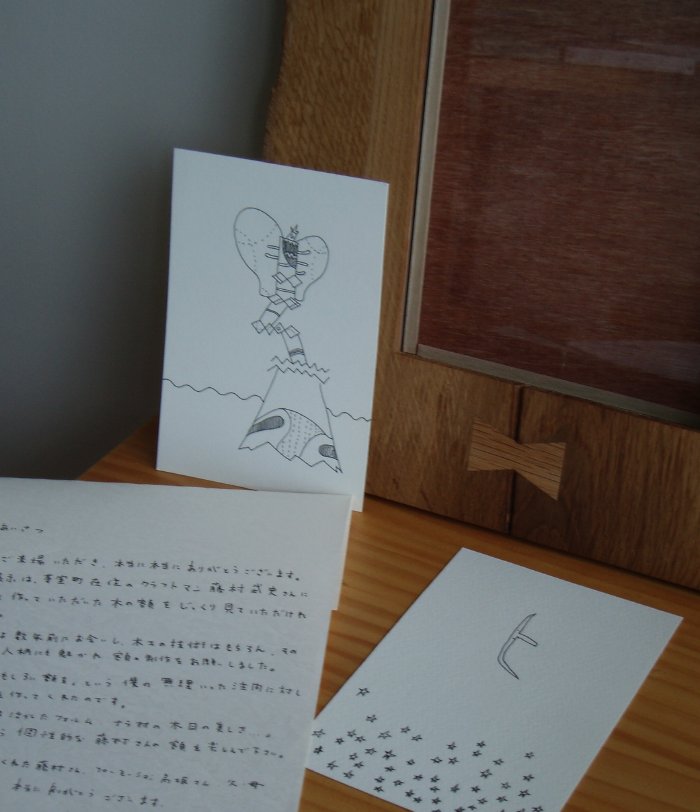 あいさつ
ご来場いただき、本当に本当にありがとうございます。
示は、芽室町在住のクラフトマン 藤村武史さんに
作っていただいた木の額をじっくり見ていただけれ
数年前にお会いし、木工の技術はもちろん、その
人柄にも魅かれ 額の制作をお願いしました。
もしろい額を。という僕の無理いった注文に対し
作ってくれたのです。
フォルム、ナラ材の木目の美しさ…。
個性的な藤村さんの額を楽しんで下さい。
くれた藤村さん、高坂さん 父・母
本当にありがとうございます。